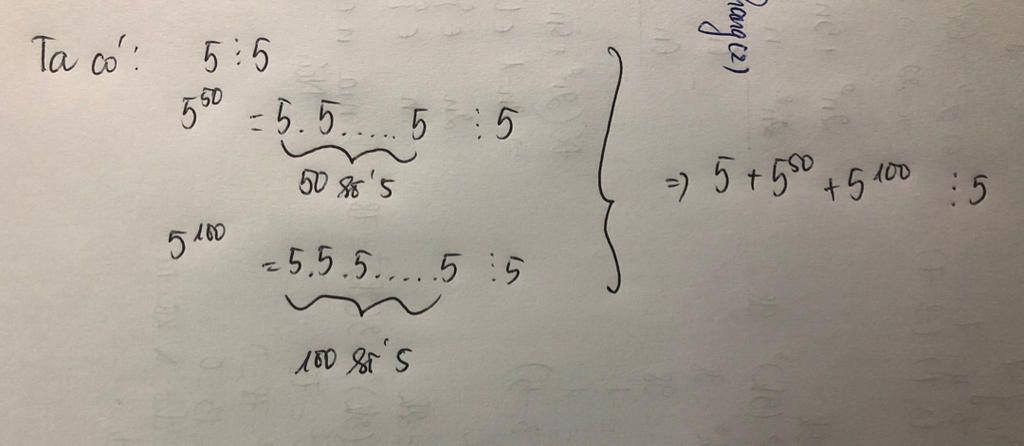 Ta có: 5 ⋮ 5
5^50 = 5.5.....5 ⋮ 5
50 số 5
5^100 = 5.5.5.....5 ⋮ 5
100 số 5
=> 5 + 5^50 + 5^100 ⋮ 5
(2)